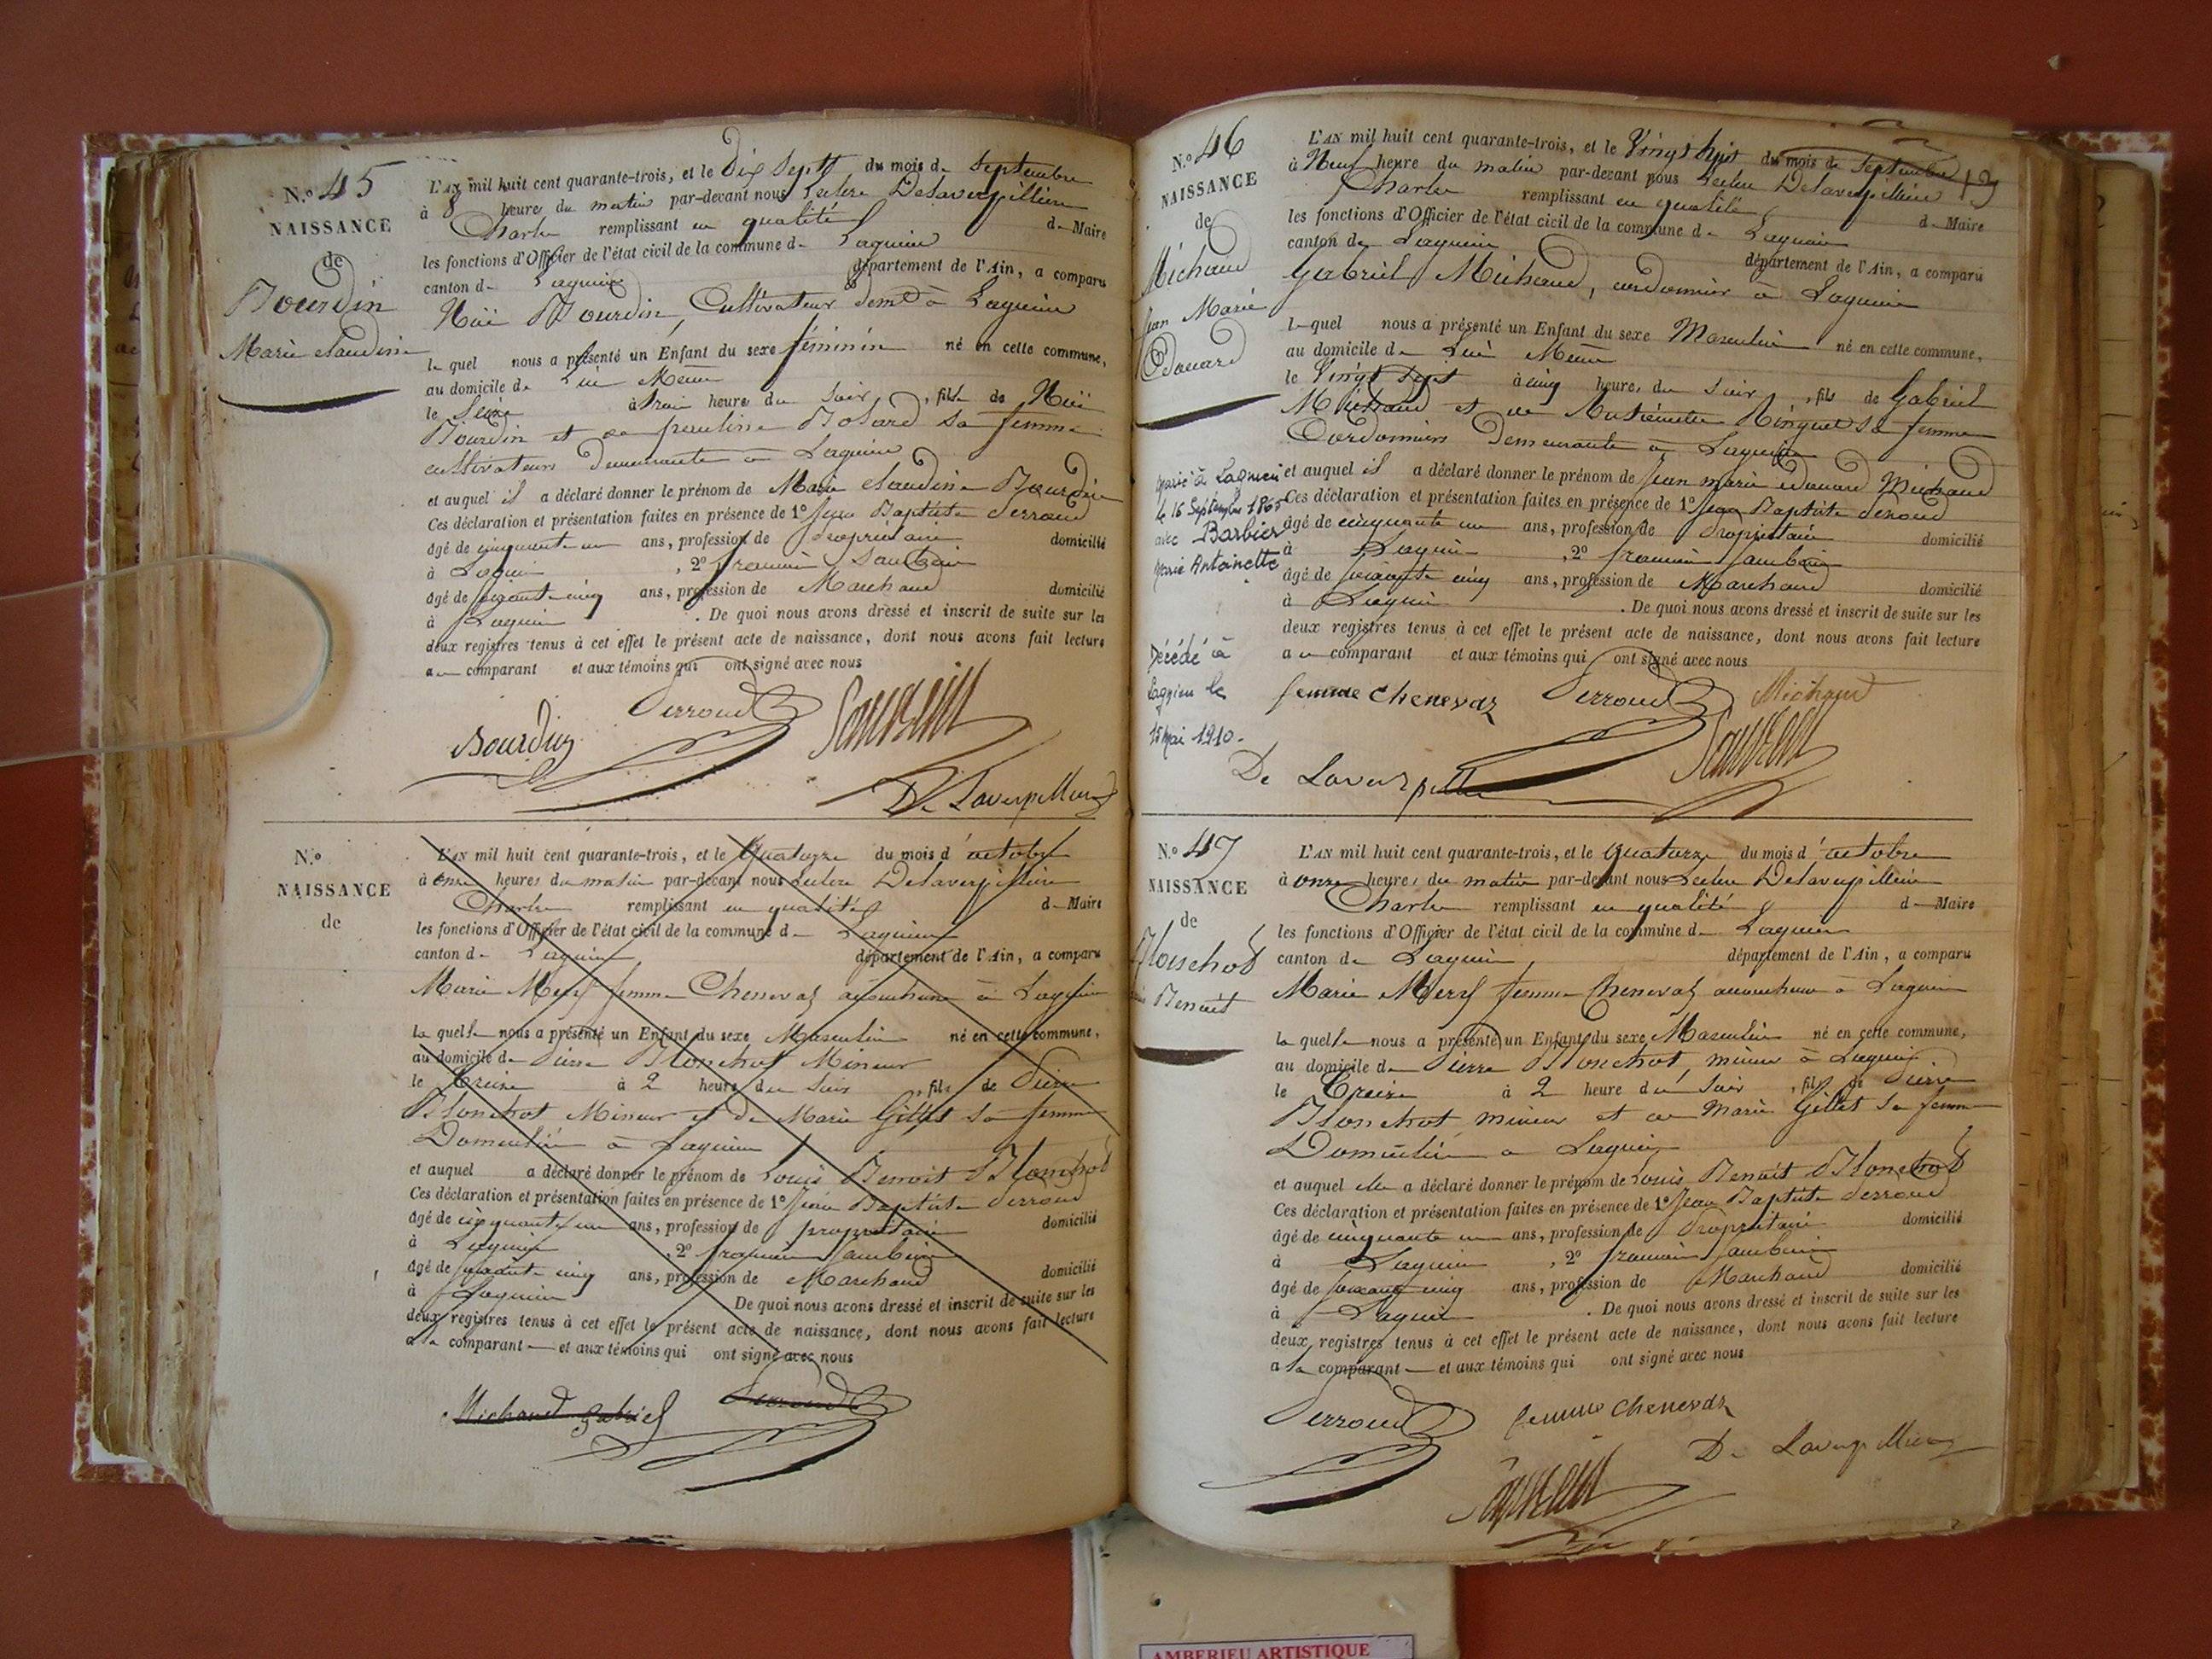 N.o 45
NAISSANCE
de
Bourdin
Marie Claudine
L'AN mil huit cent quarante-trois, et le Dix Sept du mois de Septembre
à 8 heures du matin par-devant nous Leclerc Delaverpillière
Charles remplissant en qualité de Maire
les fonctions d'Officier de l'état civil de la commune de Lagnieu
canton de Lagnieu département de l'Ain, a comparu
Bourdin, Cultivateur demt à Lagnieu
le quel nous a présenté un Enfant du sexe féminin né en cette commune,
au domicile de Lui Même
le Seize à trois heures du soir, fille de
Bourdin et de pauline sa femme
cultivateurs demeurants à Lagnieu
et auquel il a déclaré donner le prénom de Marie Claudine Bourdin
Ces déclaration et présentation faites en présence de 1º Jean Baptiste Perroud
âgé de cinquante un ans, profession de Propriétaire domicilié
à Lagnieu, 2º françois Sauvain
âgé de soixante cinq ans, profession de Marchand domicilié
à Lagnieu. De quoi nous avons dressé et inscrit de suite sur les
deux registres tenus à cet effet le présent acte de naissance, dont nous avons fait lecture
au comparant et aux témoins qui ont signé avec nous
Perroud
Bourdin
De Laverpilliere
N.o
NAISSANCE
de
L'AN mil huit cent quarante-trois, et le quatorze du mois d'octobre
à onze heures du matin par-devant nous Leclerc Delaverpillière
Charles remplissant en qualité de Maire
les fonctions d'Officier de l'état civil de la commune de Lagnieu
canton de Lagnieu département de l'Ain, a comparu
Marie femme Chenevaz accoucheuse à Lagnieu
la quelle nous a présenté un Enfant du sexe Masculin né en cette commune,
au domicile de Pierre Blonchot Mineur
le Treize à 2 heures du soir, fils de Pierre
Blonchot Mineur et de Marie Gillet sa femme
Domiciliés à Lagnieu
et auquel a déclaré donner le prénom de Louis Benoit Blonchot
Ces déclaration et présentation faites en présence de 1º Jean Baptiste Perroud
âgé de cinquante un ans, profession de propriétaire domicilié
à Lagnieu, 2º françois Sauvain
âgé de soixante cinq ans, profession de Marchand domicilié
à Lagnieu De quoi nous avons dressé et inscrit de suite sur les
deux registres tenus à cet effet le présent acte de naissance, dont nous avons fait lecture
a la comparant et aux témoins qui ont signé avec nous
Michaud Gabriel Perroud
N.o 46
NAISSANCE
de
Michaud
Jean Marie
Edouard
L'AN mil huit cent quarante-trois, et le Vingt huit du mois de Septembre
à Neuf heure du matin par-devant nous Leclerc Delaverpillière
Charles remplissant en qualité de Maire
les fonctions d'Officier de l'état civil de la commune de Lagnieu
canton de Lagnieu département de l'Ain, a comparu
Gabriel Michaud, cordonnier à Lagnieu
le quel nous a présenté un Enfant du sexe Masculin né en cette commune,
au domicile de Lui Même
le Vingt Sept à cinq heures du soir, fils de Gabriel
Michaud et de sa femme
Cordonniers demeurants à Lagnieu
et auquel il a déclaré donner le prénom de Jean marie edouard Michaud
Ces déclaration et présentation faites en présence de 1º Jean Baptiste Perroud
âgé de cinquante un ans, profession de Propriétaire domicilié
à Lagnieu, 2º françois Sauvain
âgé de soixante cinq ans, profession de Marchand domicilié
à Lagnieu. De quoi nous avons dressé et inscrit de suite sur les
deux registres tenus à cet effet le présent acte de naissance, dont nous avons fait lecture
au comparant et aux témoins qui ont signé avec nous
Marié à Lagnieu
le 16 Septembre 1865
avec Barbier
Marie Antoinette
Décédé à
Lagnieu le
15 Mai 1910.
femme Chenevaz Perroud Michaud
De Laverpilliere
N.o 47
NAISSANCE
de
Blonchot
Benoit
L'AN mil huit cent quarante-trois, et le quatorze du mois d'octobre
à onze heures du matin par-devant nous Leclerc Delaverpillière
Charles remplissant en qualité de Maire
les fonctions d'Officier de l'état civil de la commune de Lagnieu
canton de Lagnieu, département de l'Ain, a comparu
Marie femme Chenevaz accoucheuse à Lagnieu
la quelle nous a présenté un Enfant du sexe Masculin né en cette commune,
au domicile de Pierre Blonchot, mineur à Lagnieu
le Treize à 2 heure du soir, fils de Pierre
Blonchot mineur et de Marie Gillet sa femme
Domiciliés à Lagnieu
et auquel elle a déclaré donner le prénom de Louis Benoit Blonchot
Ces déclaration et présentation faites en présence de 1º Jean Baptiste Perroud
âgé de cinquante un ans, profession de Propriétaire domicilié
à Lagnieu, 2º françois Sauvain
âgé de soixante cinq ans, profession de Marchand domicilié
à Lagnieu. De quoi nous avons dressé et inscrit de suite sur les
deux registres tenus à cet effet le présent acte de naissance, dont nous avons fait lecture
a la comparant et aux témoins qui ont signé avec nous
Perroud femme Chenevaz
De Laverpilliere
AMBERIEU ARTISTIQUE